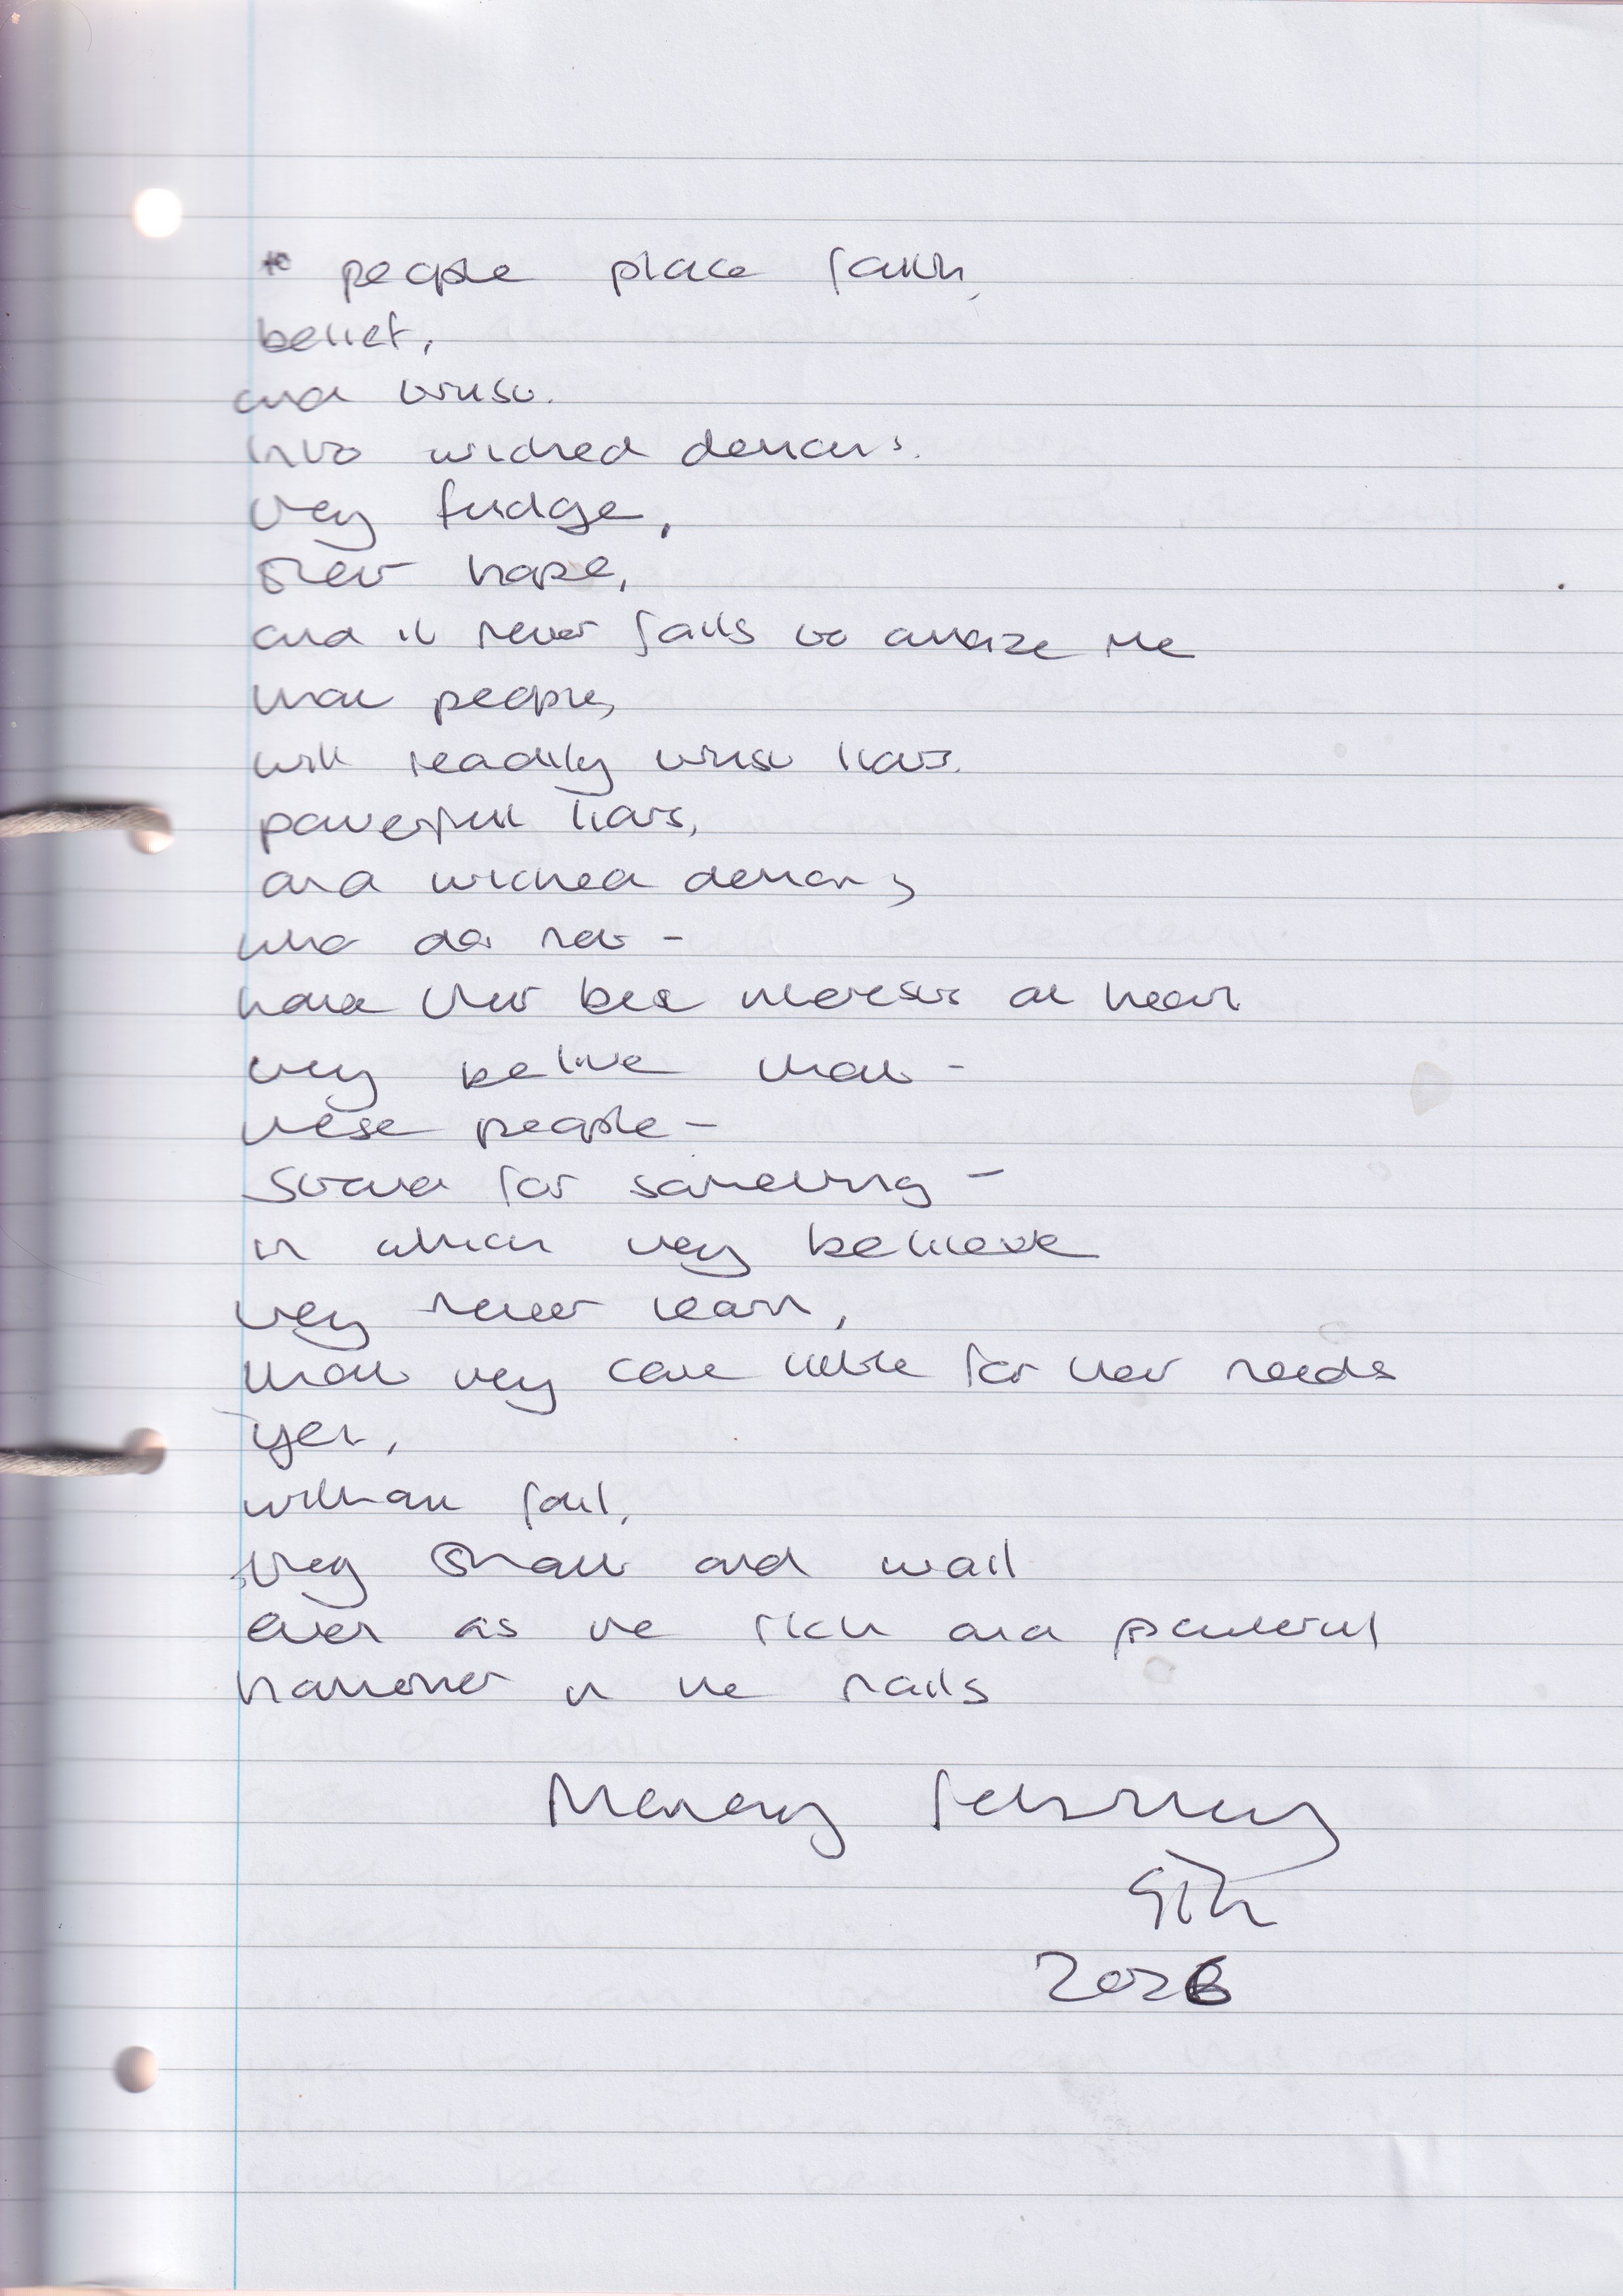 people place faith,
belief,
and trust.
into wicked demons.
they fudge,
their hope,
and it never fails to amaze me
that people,
will readily trust liars.
powerful liars,
and wicked demons
who do not -
have their best interests at heart
they belive that -
these people -
stand for something -
in which they believe
they never learn,
that they care little for their needs
yet,
without fail,
they shout and wail
even as the rich and powerful
hammer in the nails
Monday February
9th
2026